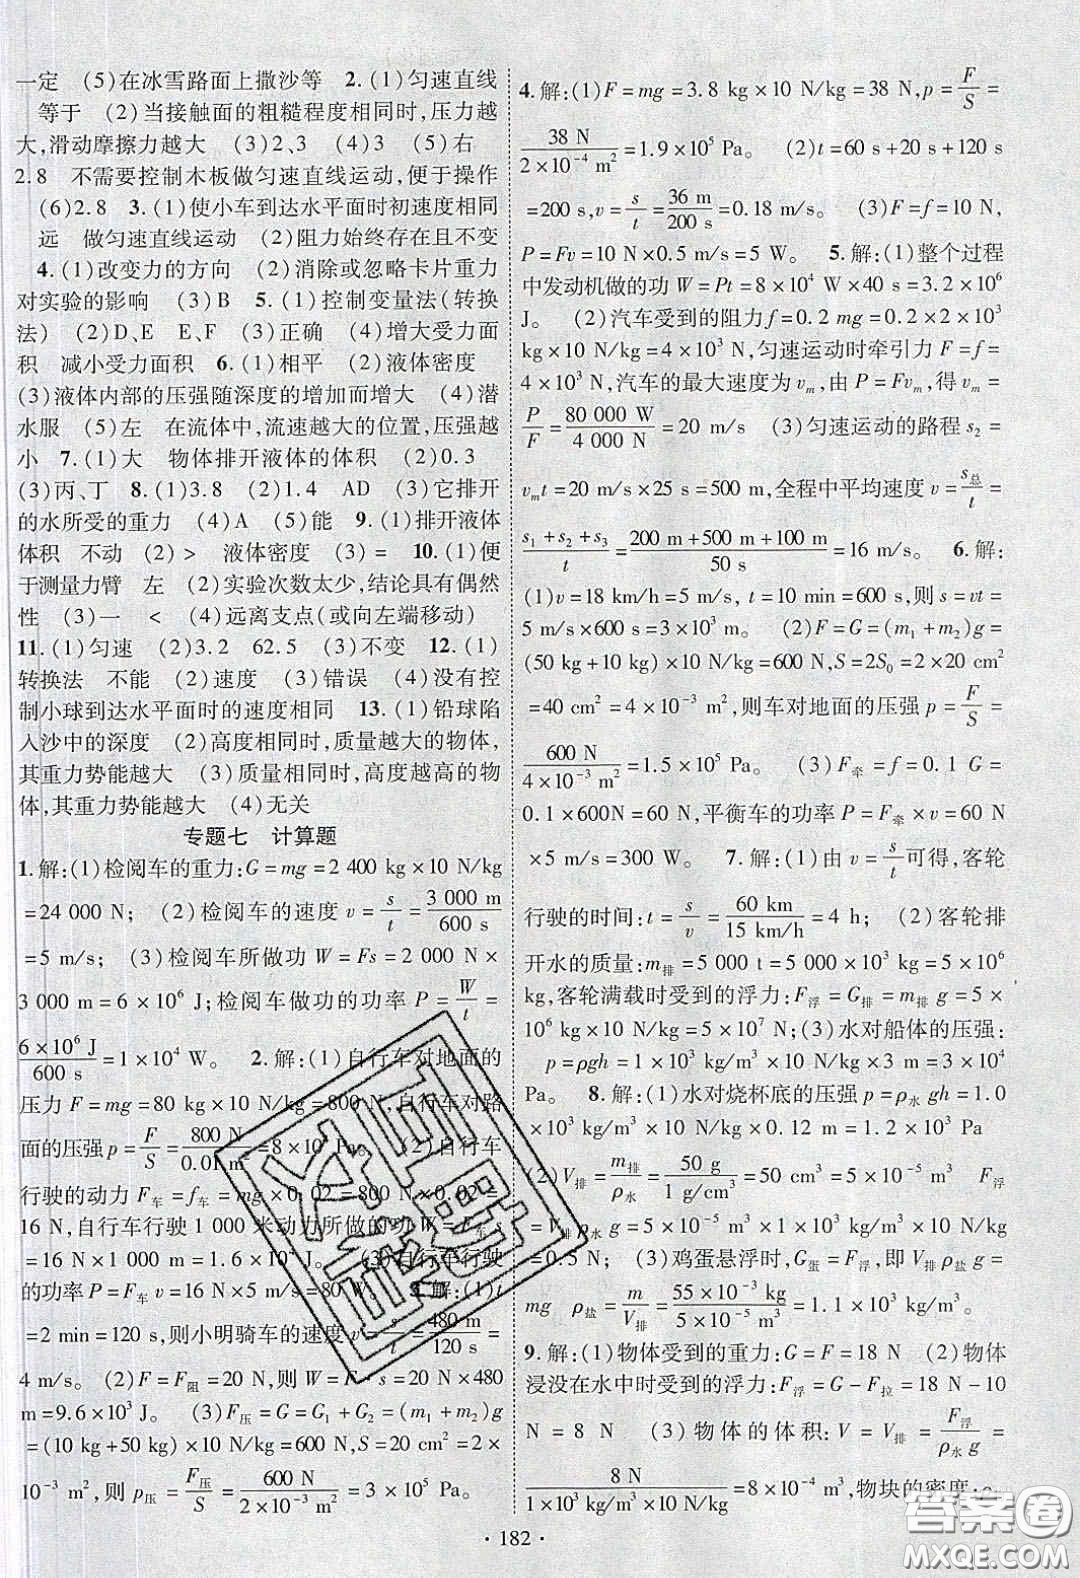 一定 (5)在冰雪路面上撒沙等 2.(1)匀速直线
等于 (2)当接触面的粗糙程度相同时,压力越
大,滑动摩擦力越大 (3)2、3 (4)3 (5)右
2.8 不需要控制木板做匀速直线运动,便于操作
(6)2.8 3.(1)使小车到达水平面时初速度相同
远 做匀速直线运动 (2)阻力始终存在且不变
4.(1)改变力的方向 (2)消除或忽略卡片重力
对实验的影响 (3)B 5.(1)控制变量法(转换
法) (2)D、E E、F (3)正确 (4)增大受力面
积 减小受力面积 6.(1)相平 (2)液体密度
(3)液体内部的压强随深度的增加而增大 (4)潜
水服 (5)左 在流体中,流速越大的位置,压强越
小 7.(1)大 物体排开液体的体积 (2)0.3
(3)丙、丁 8.(1)3.8 (2)1.4 AD (3)它排开
的水所受的重力 (4)A (5)能 9.(1)排开液体
体积 不动 (2)> 液体密度 (3)= 10.(1)便
于测量力臂 左 (2)实验次数太少,结论具有偶然
性 (3)一 < (4)远离支点(或向左端移动)
11.(1)匀速 (2)3.2 62.5 (3)不变 12.(1)
转换法 不能 (2)速度 (3)错误 (4)没有控
制小球到达水平面时的速度相同 13.(1)铅球陷
入沙中的深度 (2)高度相同时,质量越大的物体,
其重力势能越大 (3)质量相同时,高度越高的物
体,其重力势能越大 (4)无关
专题七 计算题
1.解:(1)检阅车的重力:G=mg=2 400 kg×10 N/kg
=24 000 N; (2)检阅车的速度 v=s/t=3 000 m/600 s
=5 m/s; (3)检阅车所做功 W=Fs=2 000 N×
3 000 m=6×10⁶ J;检阅车做功的功率 P=W/t=
6×10⁶ J/600 s=1×10⁴ W。 2.解:(1)自行车对地面的
压力 F=mg=80 kg×10 N/kg=800 N,自行车对路
面的压强 p=F/S=800 N/0.01 m²=8×10⁴ Pa。 (2)自行车
行驶的动力 F车=f车=mg×0.02=800 N×0.02=
16 N,自行车行驶 1 000 米动力所做的功 W=F车 s
=16 N×1 000 m=1.6×10⁴ J。 (3)自行车行驶
的功率 P=F车 v=16 N×5 m/s=80 W。 3.解:(1)t
=2 min=120 s,则小明骑车的速度 v=s/t=480 m/120 s=
4 m/s。 (2)F=F阻=20 N,则 W=F·s=20 N×480
m=9.6×10³ J。 (3)F压=G=G₁+G₂=(m₁+m₂)g
=(10 kg+50 kg)×10 N/kg=600 N,S=20 cm²=2×
10⁻³ m²,则 p压=F压/S=600 N/2×10⁻³ m²=3×10⁵ Pa。
4.解:(1)F=mg=3.8 kg×10 N/kg=38 N,p=F/S=
38 N/2×10⁻⁴ m²=1.9×10⁵ Pa。 (2)t=60 s+20 s+120 s
=200 s,v=s/t=36 m/200 s=0.18 m/s。 (3)F=f=10 N,
P=Fv=10 N×0.5 m/s=5 W。 5.解:(1)整个过程
中发动机做的功 W=Pt=8×10⁴ W×40 s=3.2×10⁶
J。 (2)汽车受到的阻力 f=0.2 mg=0.2×2×10³
kg×10 N/kg=4×10³ N,匀速运动时牵引力 F=f=
4×10³ N,汽车的最大速度为 vm,由 P=Fvm,得 vm=
P/F=80 000 W/4 000 N=20 m/s (3)匀速运动的路程 s₂=
vmt=20 m/s×25 s=500 m,全程中平均速度 v=s总/t=
s₁+s₂+s₃/t=200 m+500 m+100 m/50 s=16 m/s。 6.解:
(1)v=18 km/h=5 m/s, t=10 min=600 s,则 s=vt=
5 m/s×600 s=3×10³ m。 (2)F=G=(m₁+m₂)g=
(50 kg+10 kg)×10 N/kg=600 N,S=2S₀=2×20 cm²
=40 cm²=4×10⁻³ m²,则车对地面的压强 p=F/S=
600 N/4×10⁻³ m²=1.5×10⁵ Pa。 (3)F牵=f=0.1 G=
0.1×600N=60 N,平衡车的功率 P=F牵×v=60 N
×5 m/s=300 W。 7.解:(1)由 v=s/t可得,客轮
行驶的时间:t=s/v=60 km/15 km/h=4 h; (2)客轮排
开水的质量:m排=5 000 t=5 000×10³ kg=5×10⁶
kg,客轮满载时受到的浮力:F浮=G排=m排 g=5×
10⁶ kg×10 N/kg=5×10⁷ N;(3)水对船体的压强:
p=ρgh=1×10³ kg/m³×10 N/kg×3 m=3×10⁴
Pa。 8.解:(1)水对烧杯底的压强 p=ρ水 gh=1.0
×10³ kg/m³×10 N/kg×0.12 m=1.2×10³ Pa
(2)V排=m排/ρ水=50 g/1 g/cm³=50 cm³=5×10⁻⁵ m³ F浮
=V排 ρ水 g=5×10⁻⁵ m³×1×10³ kg/m³×10 N/kg
=0.5 N; (3)鸡蛋悬浮时,G蛋=F浮,即 V排 ρ盐 g=
mg ρ盐=m/V排=55×10⁻³ kg/5×10⁻⁵ m³=1.1×10³ kg/m³。
9.解:(1)物体受到的重力:G=F=18 N (2)物体
浸没在水中时受到的浮力:F浮=G-F拉=18 N-10
N=8 N (3)物体的体积:V=V排=F浮/ρ水 g=
8 N/1×10³ kg/m³×10 N/kg=8×10⁻⁴ m³,物块的密度:
·182·
答案圈
MXQE.COM